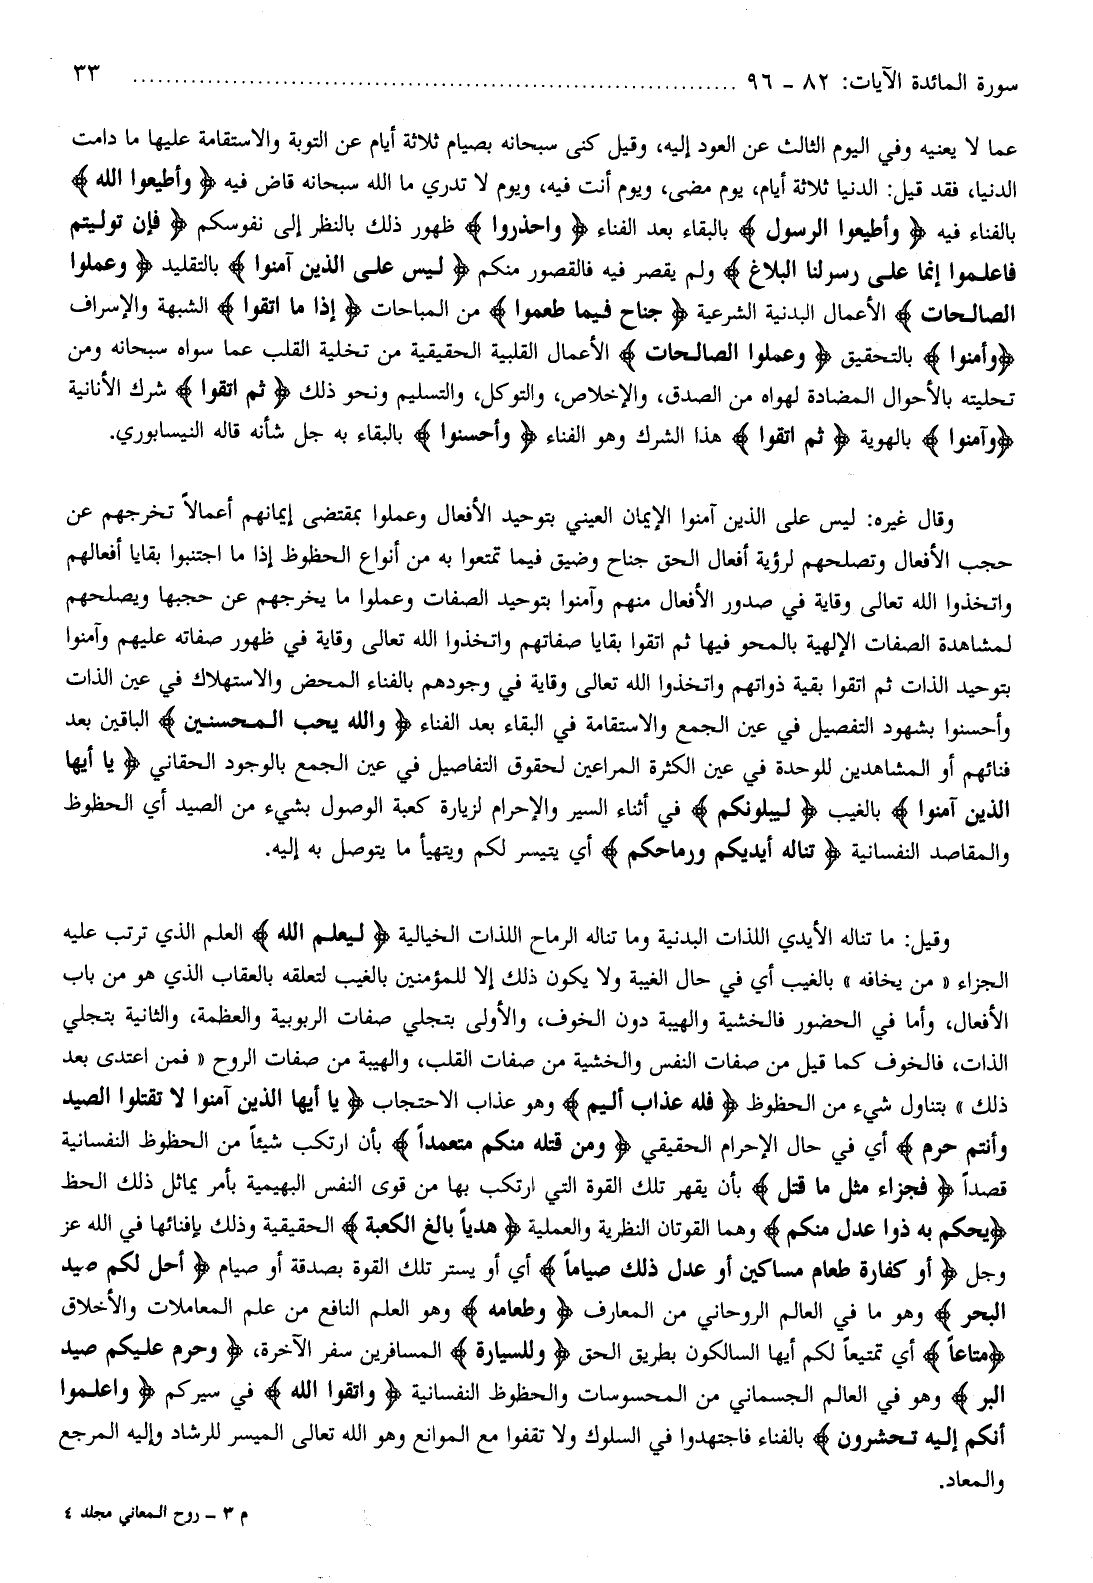 سورة المائدة الآيات: ٨٢ ـ ٩٦ ........................................................................ ٣٣
عما لا يعنيه وفي اليوم الثالث عن العود إليه، وقيل كنى سبحانه بصيام ثلاثة أيام عن التوبة والاستقامة عليها ما دامت
الدنيا، فقد قيل: الدنيا ثلاثة أيام، يوم مضى، ويوم أنت فيه، ويوم لا تدري ما الله سبحانه قاض فيه ﴿ وأطيعوا الله ﴾
بالفناء فيه ﴿ وأطيعوا الرسول ﴾ بالبقاء بعد الفناء ﴿ واحذروا ﴾ ظهور ذلك بالنظر إلى نفوسكم ﴿ فإن توليتم
فاعلموا إنما على رسولنا البلاغ ﴾ ولم يقصر فيه فالقصور منكم ﴿ ليس على الذين آمنوا ﴾ بالتقليد ﴿ وعملوا
الصالحات ﴾ الأعمال البدنية الشرعية ﴿ جناح فيما طعموا ﴾ من المباحات ﴿ إذا ما اتقوا ﴾ الشبهة والإسراف
﴿وأمنوا ﴾ بالتحقيق ﴿ وعملوا الصالحات ﴾ الأعمال القلبية الحقيقية من تخلية القلب عما سواه سبحانه ومن
تحليته بالأحوال المضادة لهواه من الصدق، والإخلاص، والتوكل، والتسليم ونحو ذلك ﴿ ثم اتقوا ﴾ شرك الأنانية
﴿وآمنوا ﴾ بالهوية ﴿ ثم اتقوا ﴾ هذا الشرك وهو الفناء ﴿ وأحسنوا ﴾ بالبقاء به جل شأنه قاله النيسابوري.
وقال غيره: ليس على الذين آمنوا الإيمان العيني بتوحيد الأفعال وعملوا بمقتضى إيمانهم أعمالاً تخرجهم عن
حجب الأفعال وتصلحهم لرؤية أفعال الحق جناح وضيق فيما تمتعوا به من أنواع الحظوظ إذا ما اجتنبوا بقايا أفعالهم
واتخذوا الله تعالى وقاية في صدور الأفعال منهم وآمنوا بتوحيد الصفات وعملوا ما يخرجهم عن حجبها ويصلحهم
لمشاهدة الصفات الإلهية بالمحو فيها ثم اتقوا بقايا صفاتهم واتخذوا الله تعالى وقاية في ظهور صفاته عليهم وآمنوا
بتوحيد الذات ثم اتقوا بقية ذواتهم واتخذوا الله تعالى وقاية في وجودهم بالفناء المحض والاستهلاك في عين الذات
وأحسنوا بشهود التفصيل في عين الجمع والاستقامة في البقاء بعد الفناء ﴿ والله يحب المحسنين ﴾ الباقين بعد
فنائهم أو المشاهدين للوحدة في عين الكثرة المراعين لحقوق التفاصيل في عين الجمع بالوجود الحقاني ﴿ يا أيها
الذين آمنوا ﴾ بالغيب ﴿ ليبلونكم ﴾ في أثناء السير والإحرام لزيارة كعبة الوصول بشيء من الصيد أي الحظوظ
والمقاصد النفسانية ﴿ تناله أيديكم ورماحكم ﴾ أي يتيسر لكم ويتهيأ ما يتوصل به إليه.
وقيل: ما تناله الأيدي اللذات البدنية وما تناله الرماح اللذات الخيالية ﴿ ليعلم الله ﴾ العلم الذي ترتب عليه
الجزاء « من يخافه » بالغيب أي في حال الغيبة ولا يكون ذلك إلا للمؤمنين بالغيب لتعلقه بالعقاب الذي هو من باب
الأفعال، وأما في الحضور فالخشية والهيبة دون الخوف، والأولى بتجلي صفات الربوبية والعظمة، والثانية بتجلي
الذات، فالخوف كما قيل من صفات النفس والخشية من صفات القلب، والهيبة من صفات الروح « فمن اعتدى بعد
ذلك » بتناول شيء من الحظوظ ﴿ فله عذاب أليم ﴾ وهو عذاب الاحتجاب ﴿ يا أيها الذين آمنوا لا تقتلوا الصيد
وأنتم حرم ﴾ أي في حال الإحرام الحقيقي ﴿ ومن قتله منكم متعمداً ﴾ بأن ارتكب شيئاً من الحظوظ النفسانية
قصداً ﴿ فجزاء مثل ما قتل ﴾ بأن يقهر تلك القوة التي ارتكب بها من قوى النفس البهيمية بأمر يماثل ذلك الحظ
﴿يحكم به ذوا عدل منكم ﴾ وهما القوتان النظرية والعملية ﴿ هدياً بالغ الكعبة ﴾ الحقيقية وذلك بإفنائها في الله عز
وجل ﴿ أو كفارة طعام مساكين أو عدل ذلك صياماً ﴾ أي أو يستر تلك القوة بصدقة أو صيام ﴿ أحل لكم صيد
البحر ﴾ وهو ما في العالم الروحاني من المعارف ﴿ وطعامه ﴾ وهو العلم النافع من علم المعاملات والأخلاق
﴿متاعاً ﴾ أي تمتيعاً لكم أيها السالكون بطريق الحق ﴿ وللسيارة ﴾ المسافرين سفر الآخرة، ﴿ وحرم عليكم صيد
البر ﴾ وهو في العالم الجسماني من المحسوسات والحظوظ النفسانية ﴿ واتقوا الله ﴾ في سيركم ﴿ واعلموا
أنكم إليه تحشرون ﴾ بالفناء فاجتهدوا في السلوك ولا تقفوا مع الموانع وهو الله تعالى الميسر للرشاد وإليه المرجع
والمعاد.
م ٣ ـ روح المعاني مجلد ٤